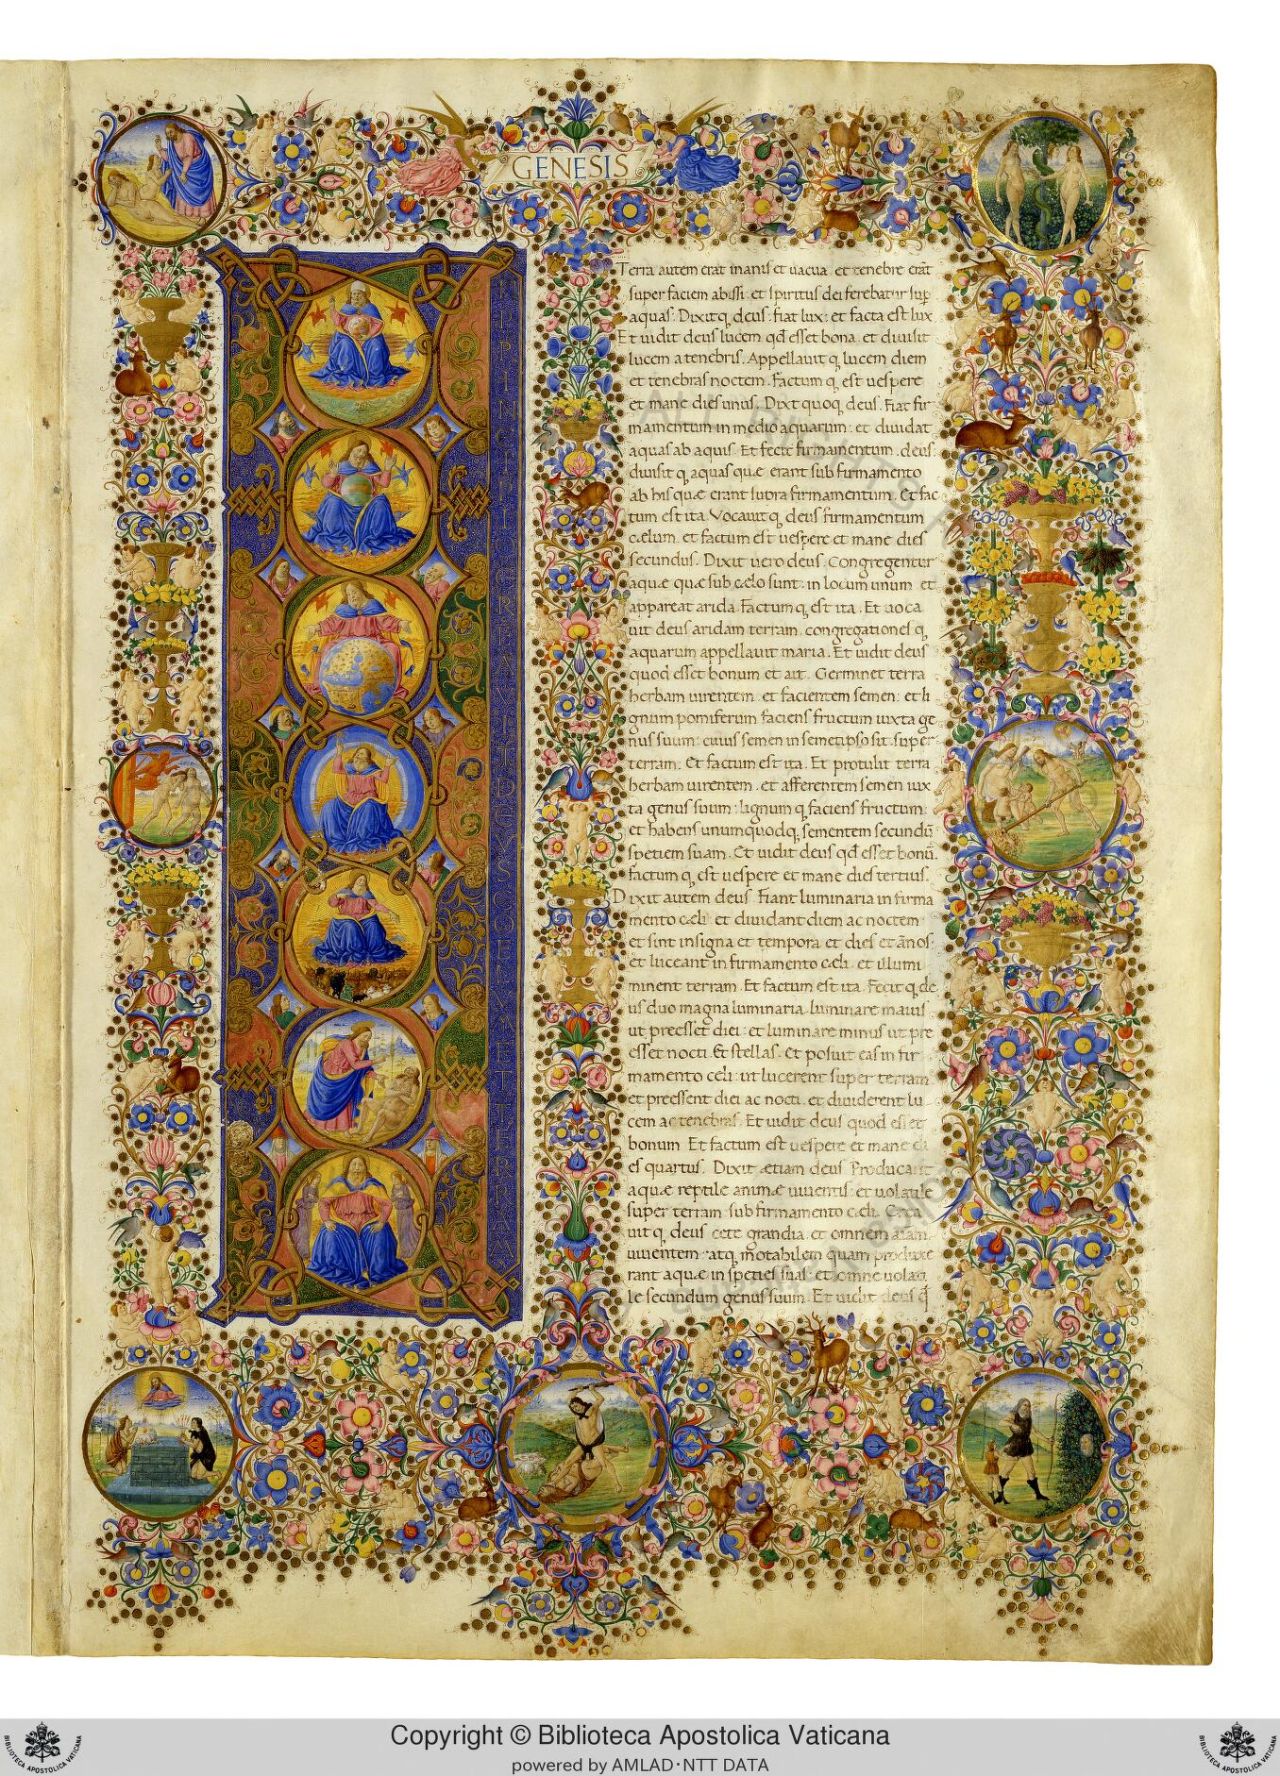 GENESIS
N PRINCIPIO CREAVIT DEVS COELVM ET TERRAM
Terra autem erat inanis et uacua et tenebre erāt
super faciem abissi: et spiritus dei ferebatur sup
aquas. Dixitq, deus: fiat lux: et facta est lux
Et uidit deus lucem qd esset bona: et diuisit
lucem a tenebris. Appellauit q, lucem diem
et tenebras noctem. Factum q, est uespere
et mane dies unus. Dixit quoq, deus. Fiat fir
mamentum in medio aquarum: et diuidat
aquas ab aquis. Et fecit firmamentum deus
diuisit q, aquas quæ erant sub firmamento
ab his quæ erant supra firmamentum. Et fac
tum est ita. Vocauit q, deus firmamentum
cælum: et factum est uespere et mane dies
secundus. Dixit uero deus. Congregentur
aquæ quæ sub cælo sunt: in locum unum: et
appareat arida. Factum q, est ita. Et uoca
uit deus aridam terram: congregationes q,
aquarum appellauit maria. Et uidit deus
quod esset bonum et ait. Germinet terra
herbam uirentem: et facientem semen: et li
gnum pomiferum faciens fructum iuxta ge
nus suum: cuius semen in semetipso sit: super
terram. Et factum est ita. Et protulit terra
herbam uirentem: et afferentem semen iux
ta genus suum: lignum q, faciens fructum:
et habens unumquodq, sementem secundū
spetiem suam. Et uidit deus qd esset bonū.
factum q, est uespere et mane dies tertius.
Dixit autem deus. Fiant luminaria in firma
mento cæli: et diuidant diem ac noctem:
et sint in signa et tempora et dies et ānos:
et luceant in firmamento cæli: et illumi
minent terram. Et factum est ita. Fecit q, de
us duo magna luminaria: luminare maius
ut preesset diei: et luminare minus ut pre
esset nocti. Et stellas. Et posuit eas in fir
mamento celi: ut lucerent super terram
et preessent diei ac nocti: et diuiderent lu
cem ac tenebras. Et uidit deus quod esset
bonum. Et factum est uespere et mane di
es quartus. Dixit ætiam deus. Producant
aquæ reptile animæ uiuentis: et uolatile
super terram: sub firmamento cæli. Crea
uit q, deus cete grandia: et omnem aiam
uiuentem: atq, motabilem quam produxe
rant aquæ in species suas: et omne uolati
le secundum genus suum. Et uidit deus q
Copyright © Biblioteca Apostolica Vaticana
powered by AMLAD·NTT DATA
BIBLIOTECA APOSTOLICA VATICANA
BIBLIOTECA APOSTOLICA VATICANA